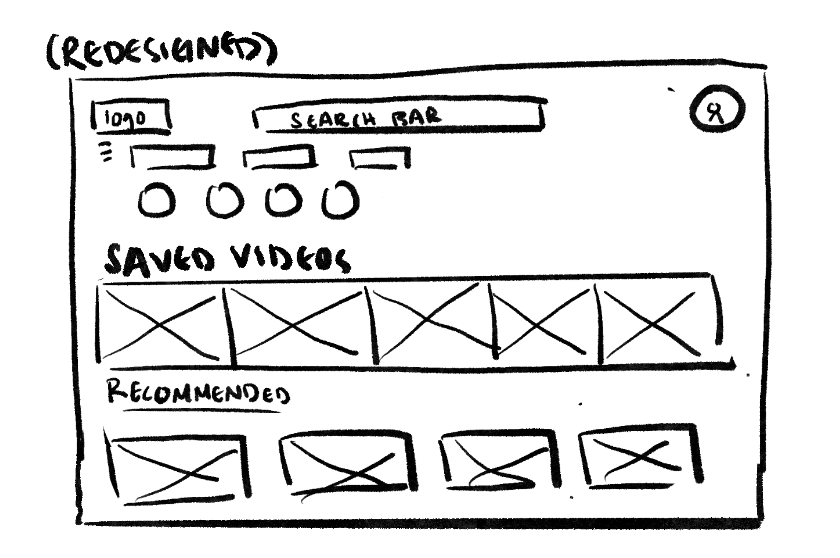 (REDESIGNED)
logo
SEARCH BAR
SAVED VIDEOS
RECOMMENDED